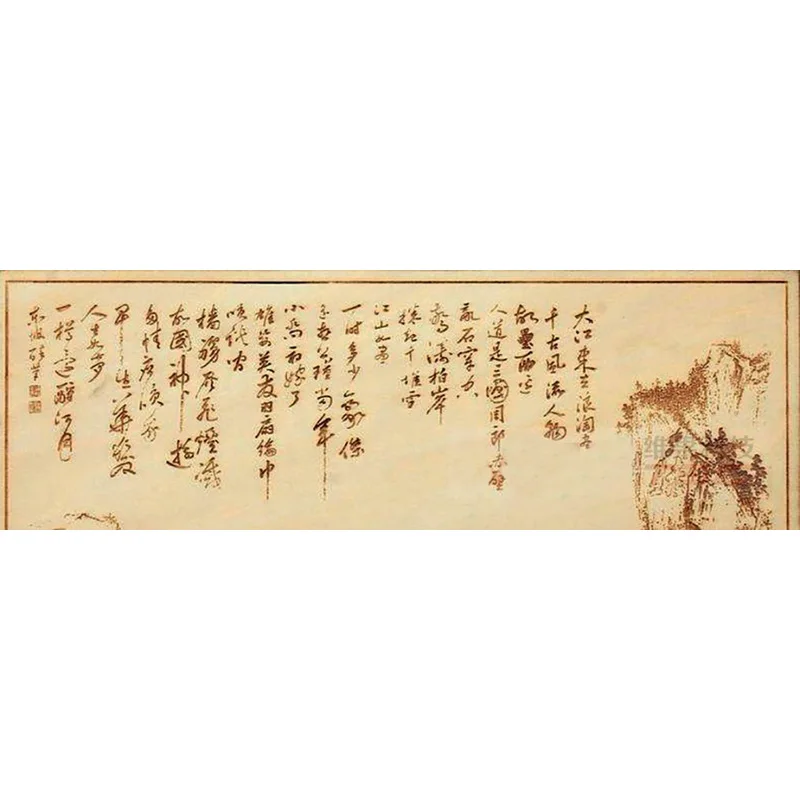 大江東去浪淘盡
千古風流人物
故壘西邊
人道是三國周郎赤壁
亂石穿空
驚濤拍岸
捲起千堆雪
江山如畫
一時多少豪傑
遙想公瑾當年
小喬初嫁了
雄姿英發羽扇綸巾
咲談间
檣櫓灰飛煙滅
故國神遊
多情應咲我
早生華髮
人生如夢
一樽還酹江月
東坡